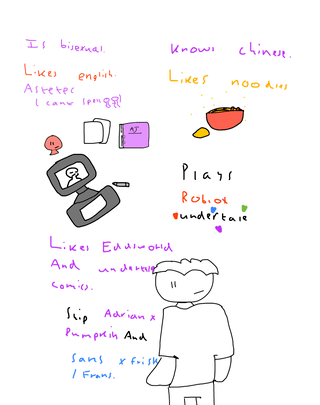 Is bisexual.
Knows chinese.
Likes english.
Likes noodles
AJ
Plays
Roblox
undertale
Likes Eddsworld
And undertale
comics.
Ship Adrian x
Pumpkish And
sans x frisk
/ Frans.